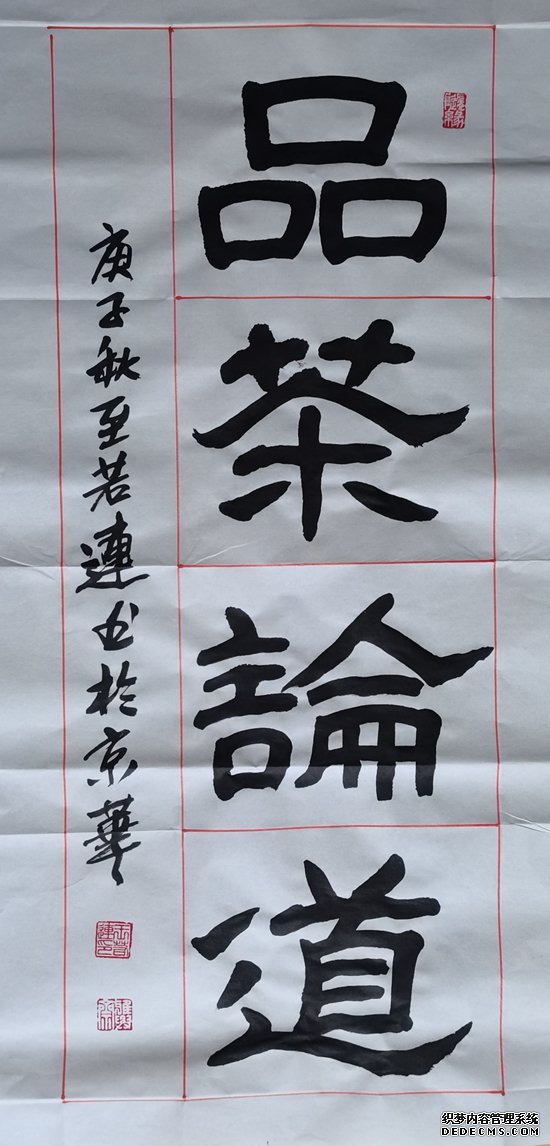 品茶論道
庚子秋至若連书於京華
织梦内容管理系统
DEDECMS.COM